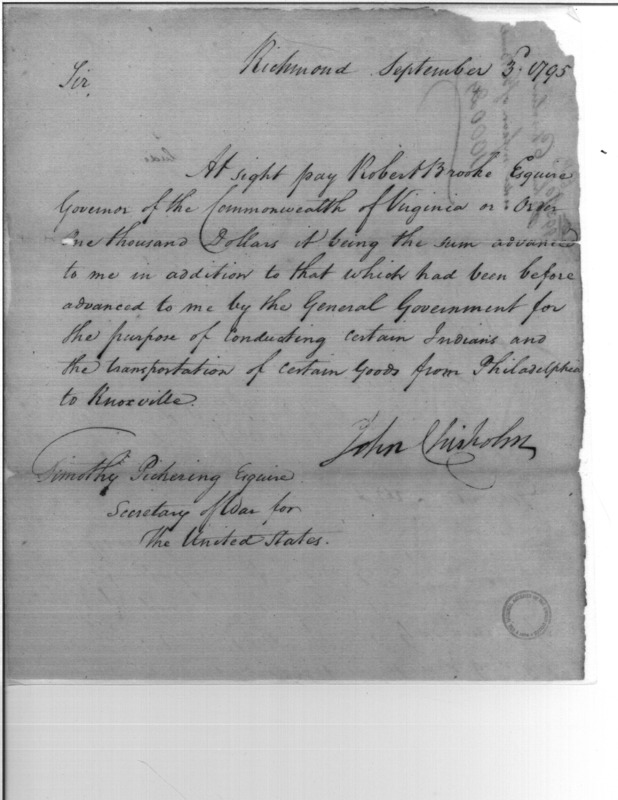 Richmond September 3d. 1795
Sir,
At sight pay Robert Brooke Esquire
Governor of the Commonwealth of Virginia or Order
One thousand Dollars it being the sum advanced
to me in addition to that which had been before
advanced to me by the General Government for
the purpose of conducting certain Indians and
the transportation of certain Goods from Philadelphia
to Knoxville.
John Chisholm
Timothy Pickering Esquire
Secretary of War for
the United States.